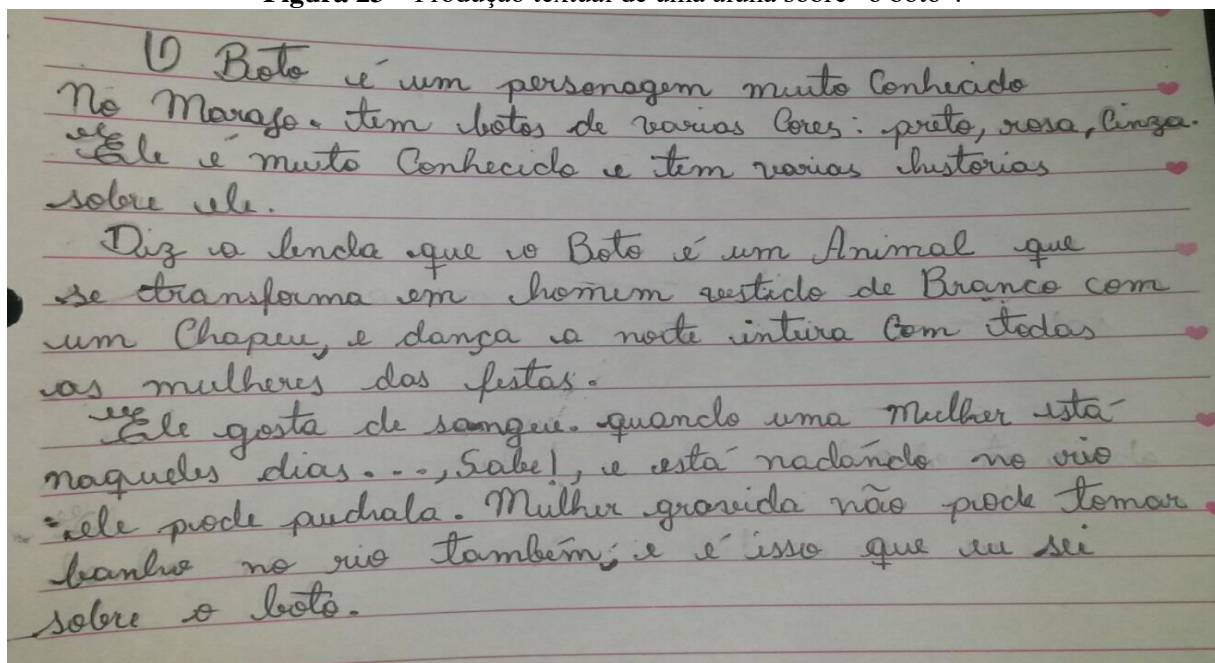 Figura 25 – Produção textual de uma aluna sobre "o boto".
O Boto é um personagem muito Conhecido
No Marajo. tem botos de varias Cores: preto, rosa, Cinza.
Ele é muto Conhecido e tem varias historias
sobre ele.
Diz a lenda que o Boto é um Animal que
se transforma em homem vestido de Branco com
um Chapeu, e dança a noite inteira Com todas
as mulheres das festas.
Ele gosta de sangue. quando uma Mulher está
naqueles dias..., Sabe!, e está nadando no rio
ele pode puchala. Mulher gravida não pode tomar
banho no rio também; e é isso que eu sei
sobre o boto.